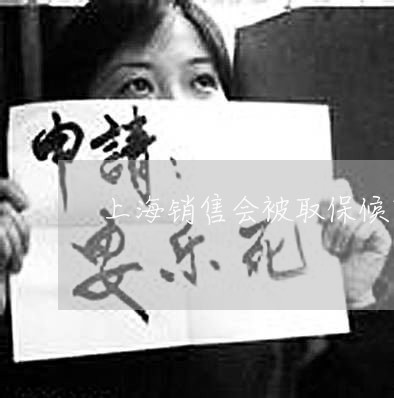 申請：
上海销售会被取保候
安乐死